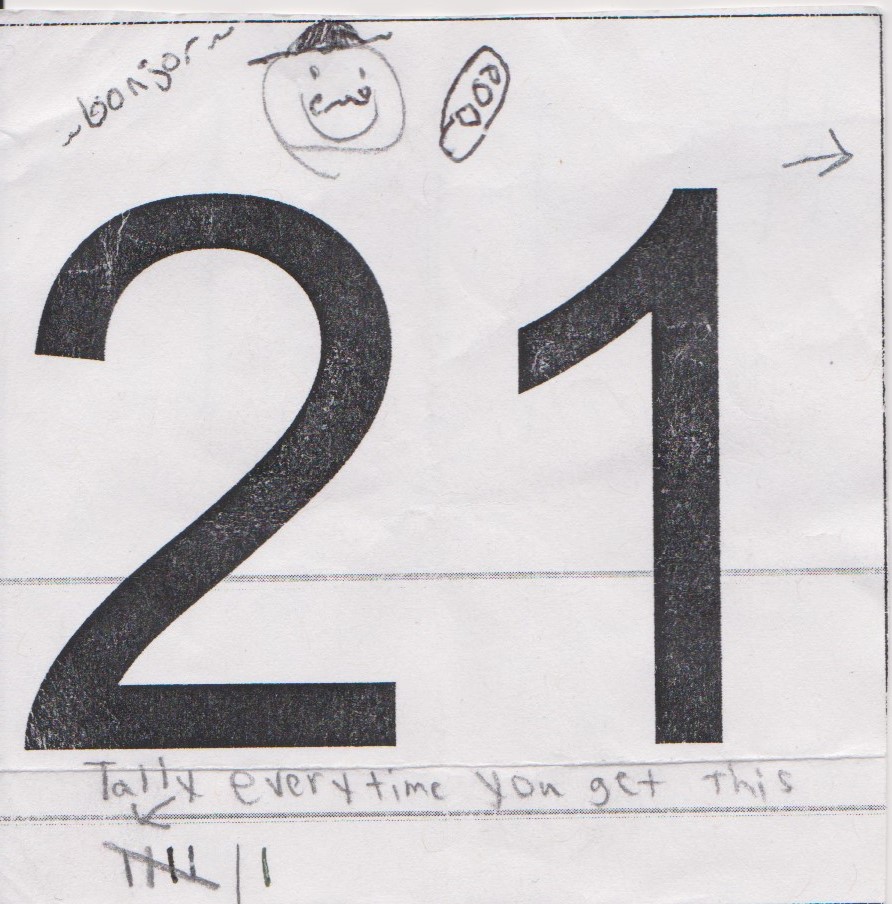 ~bonjor~
21
Tally everytime you get this